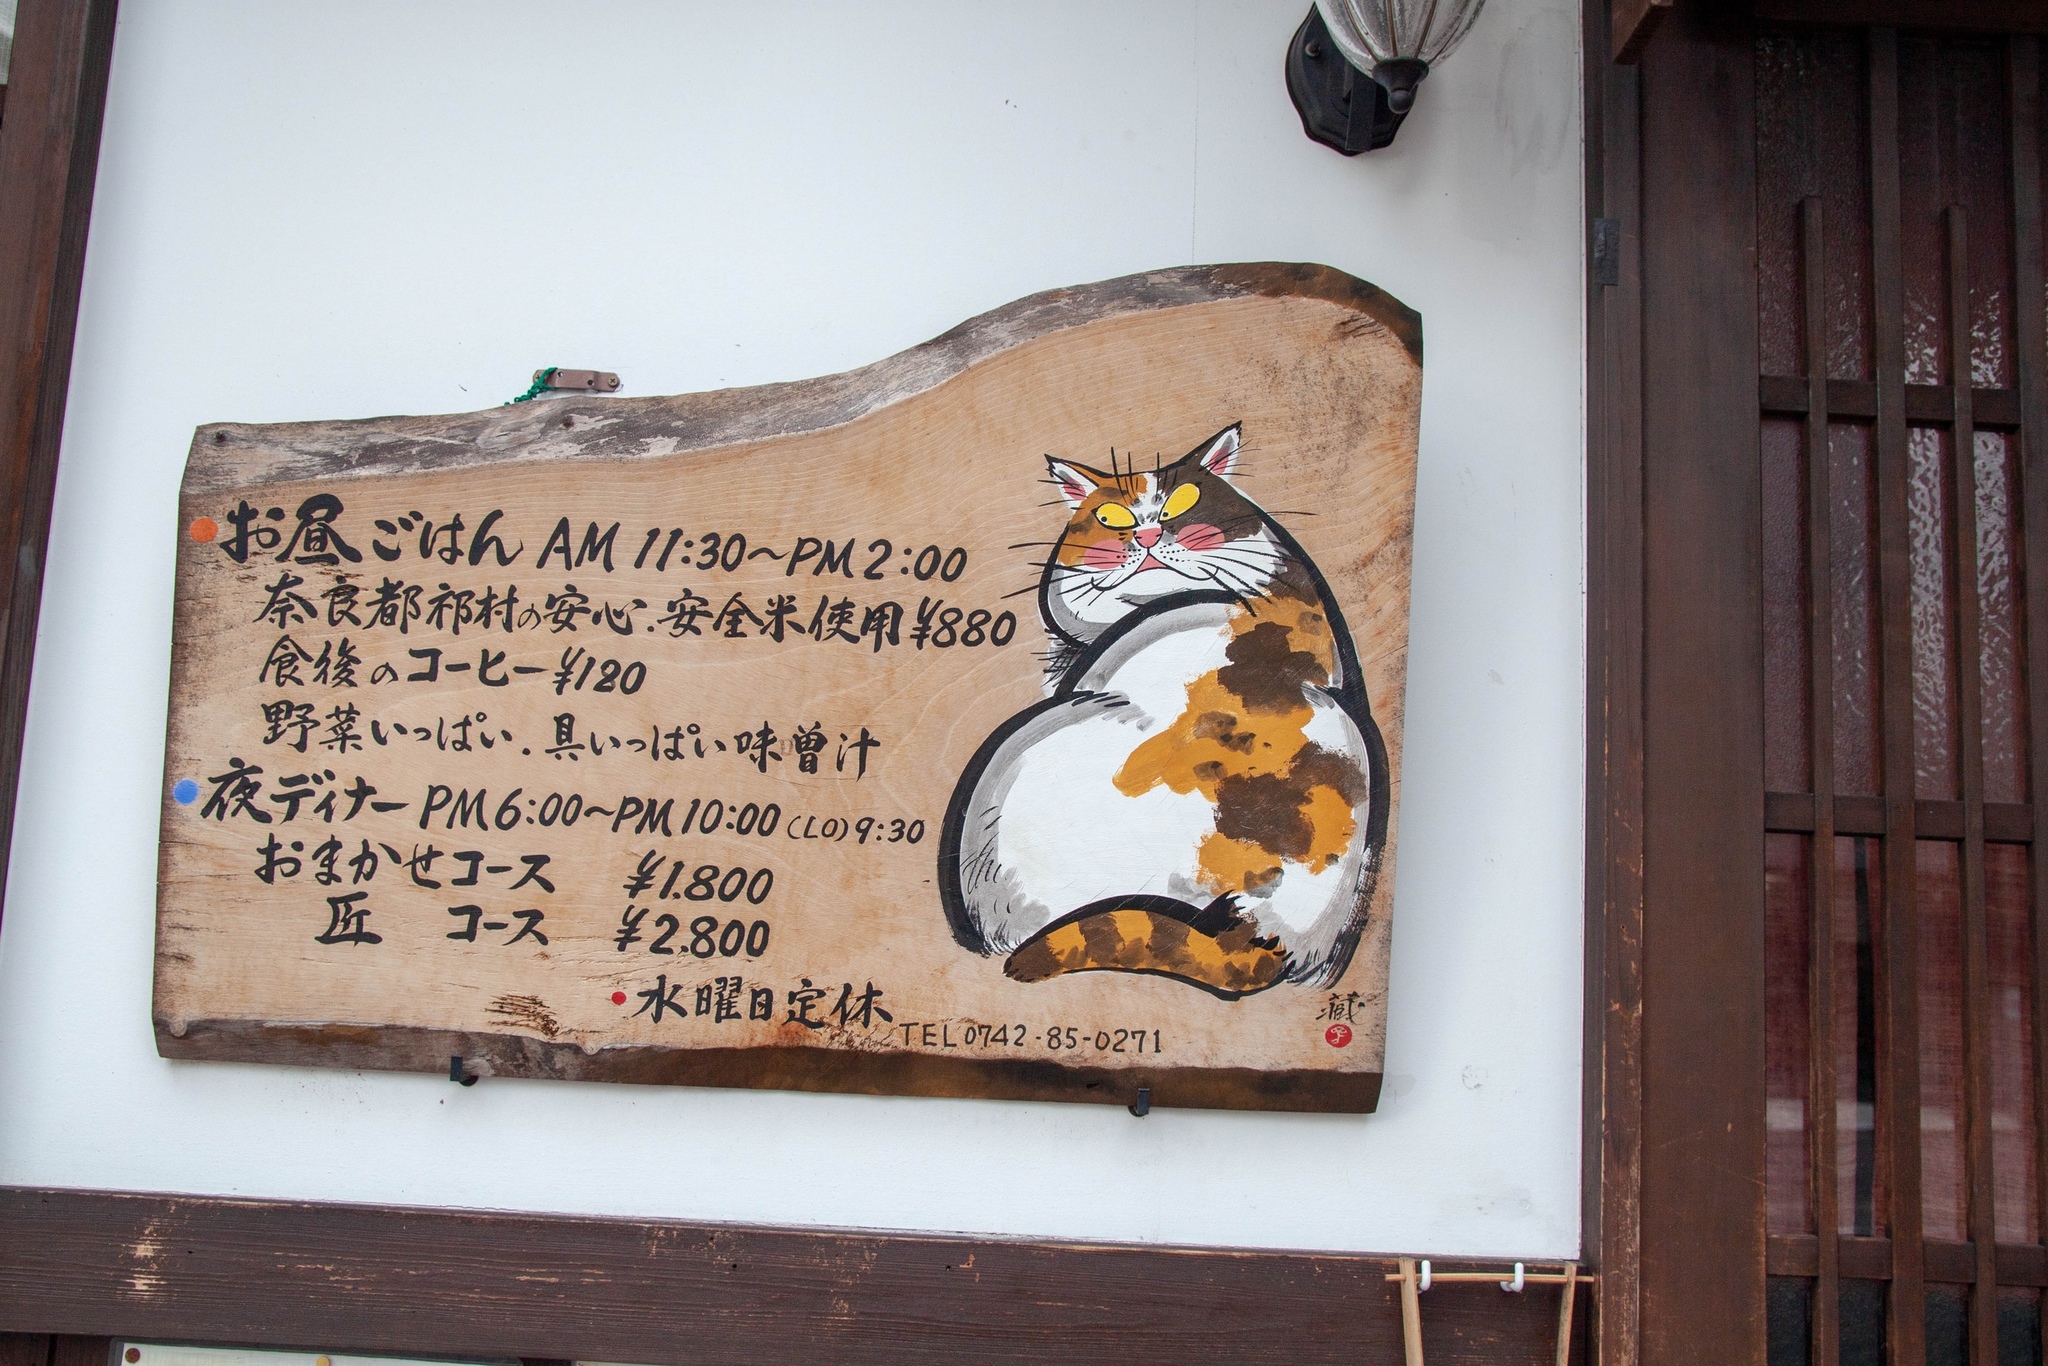 お昼ごはん AM 11:30〜PM 2:00
奈良都祁村の安心.安全米使用¥880
食後のコーヒー¥120
野菜いっぱい.具いっぱい味噌汁
夜ディナー PM 6:00〜PM 10:00 (LO) 9:30
おまかせコース ¥1.800
匠 コース ¥2.800
水曜日定休
TEL 0742-85-0271